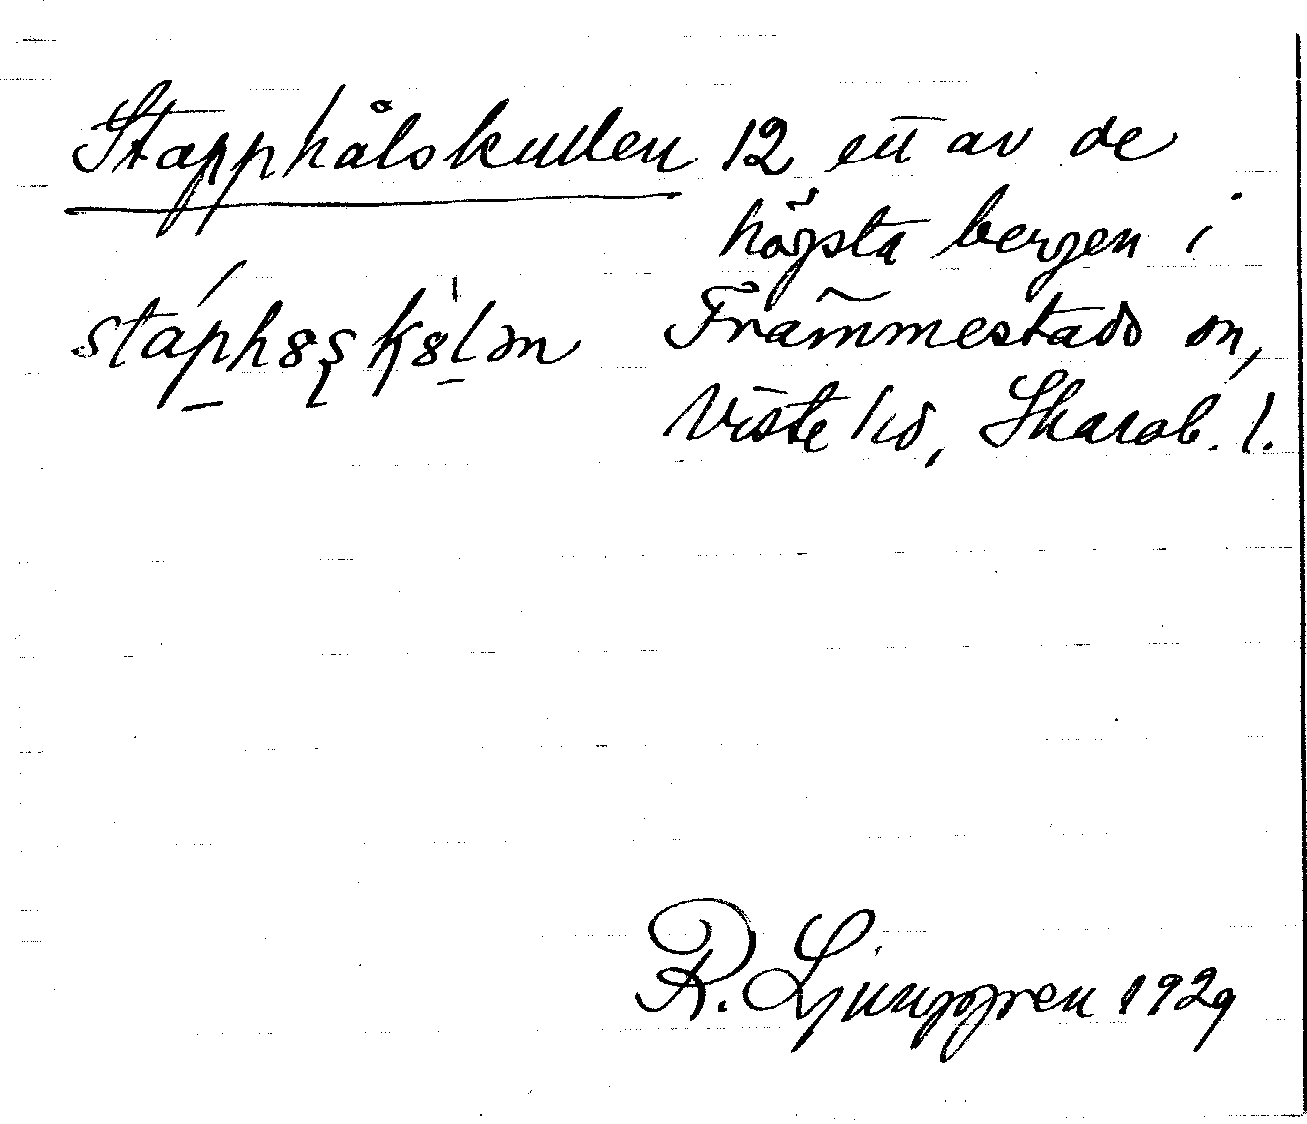 Stapphålskullen 12 ett av de
högsta bergen i
staphȣşkȣlən Främmestads sn,
Viste hd, Skarab. l.
R. Ljunggren 1929